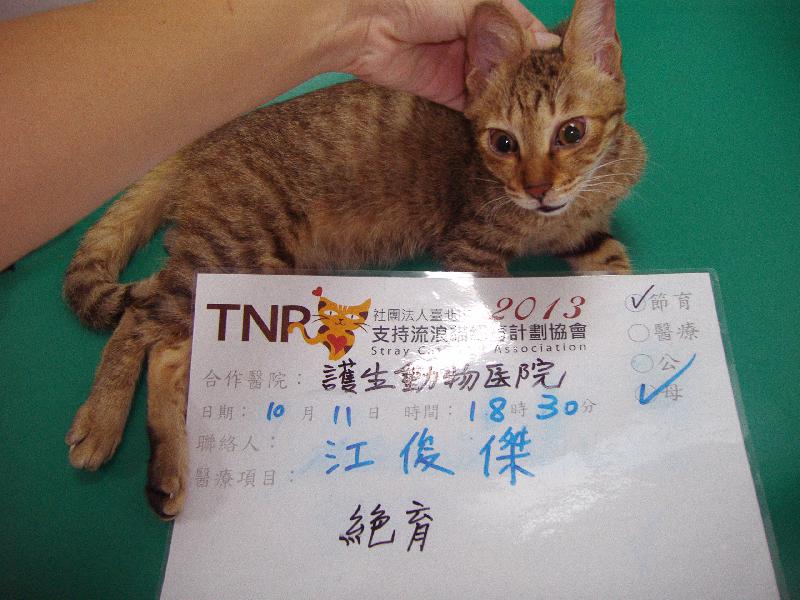 TNR 社團法人臺北 2013
支持流浪貓 計劃協會
Stray Ca Association
節育
醫療
公
母
合作醫院：護生動物医院
日期：10月11日 時間：18時30分
聯絡人：江俊傑
醫療項目：
絕育